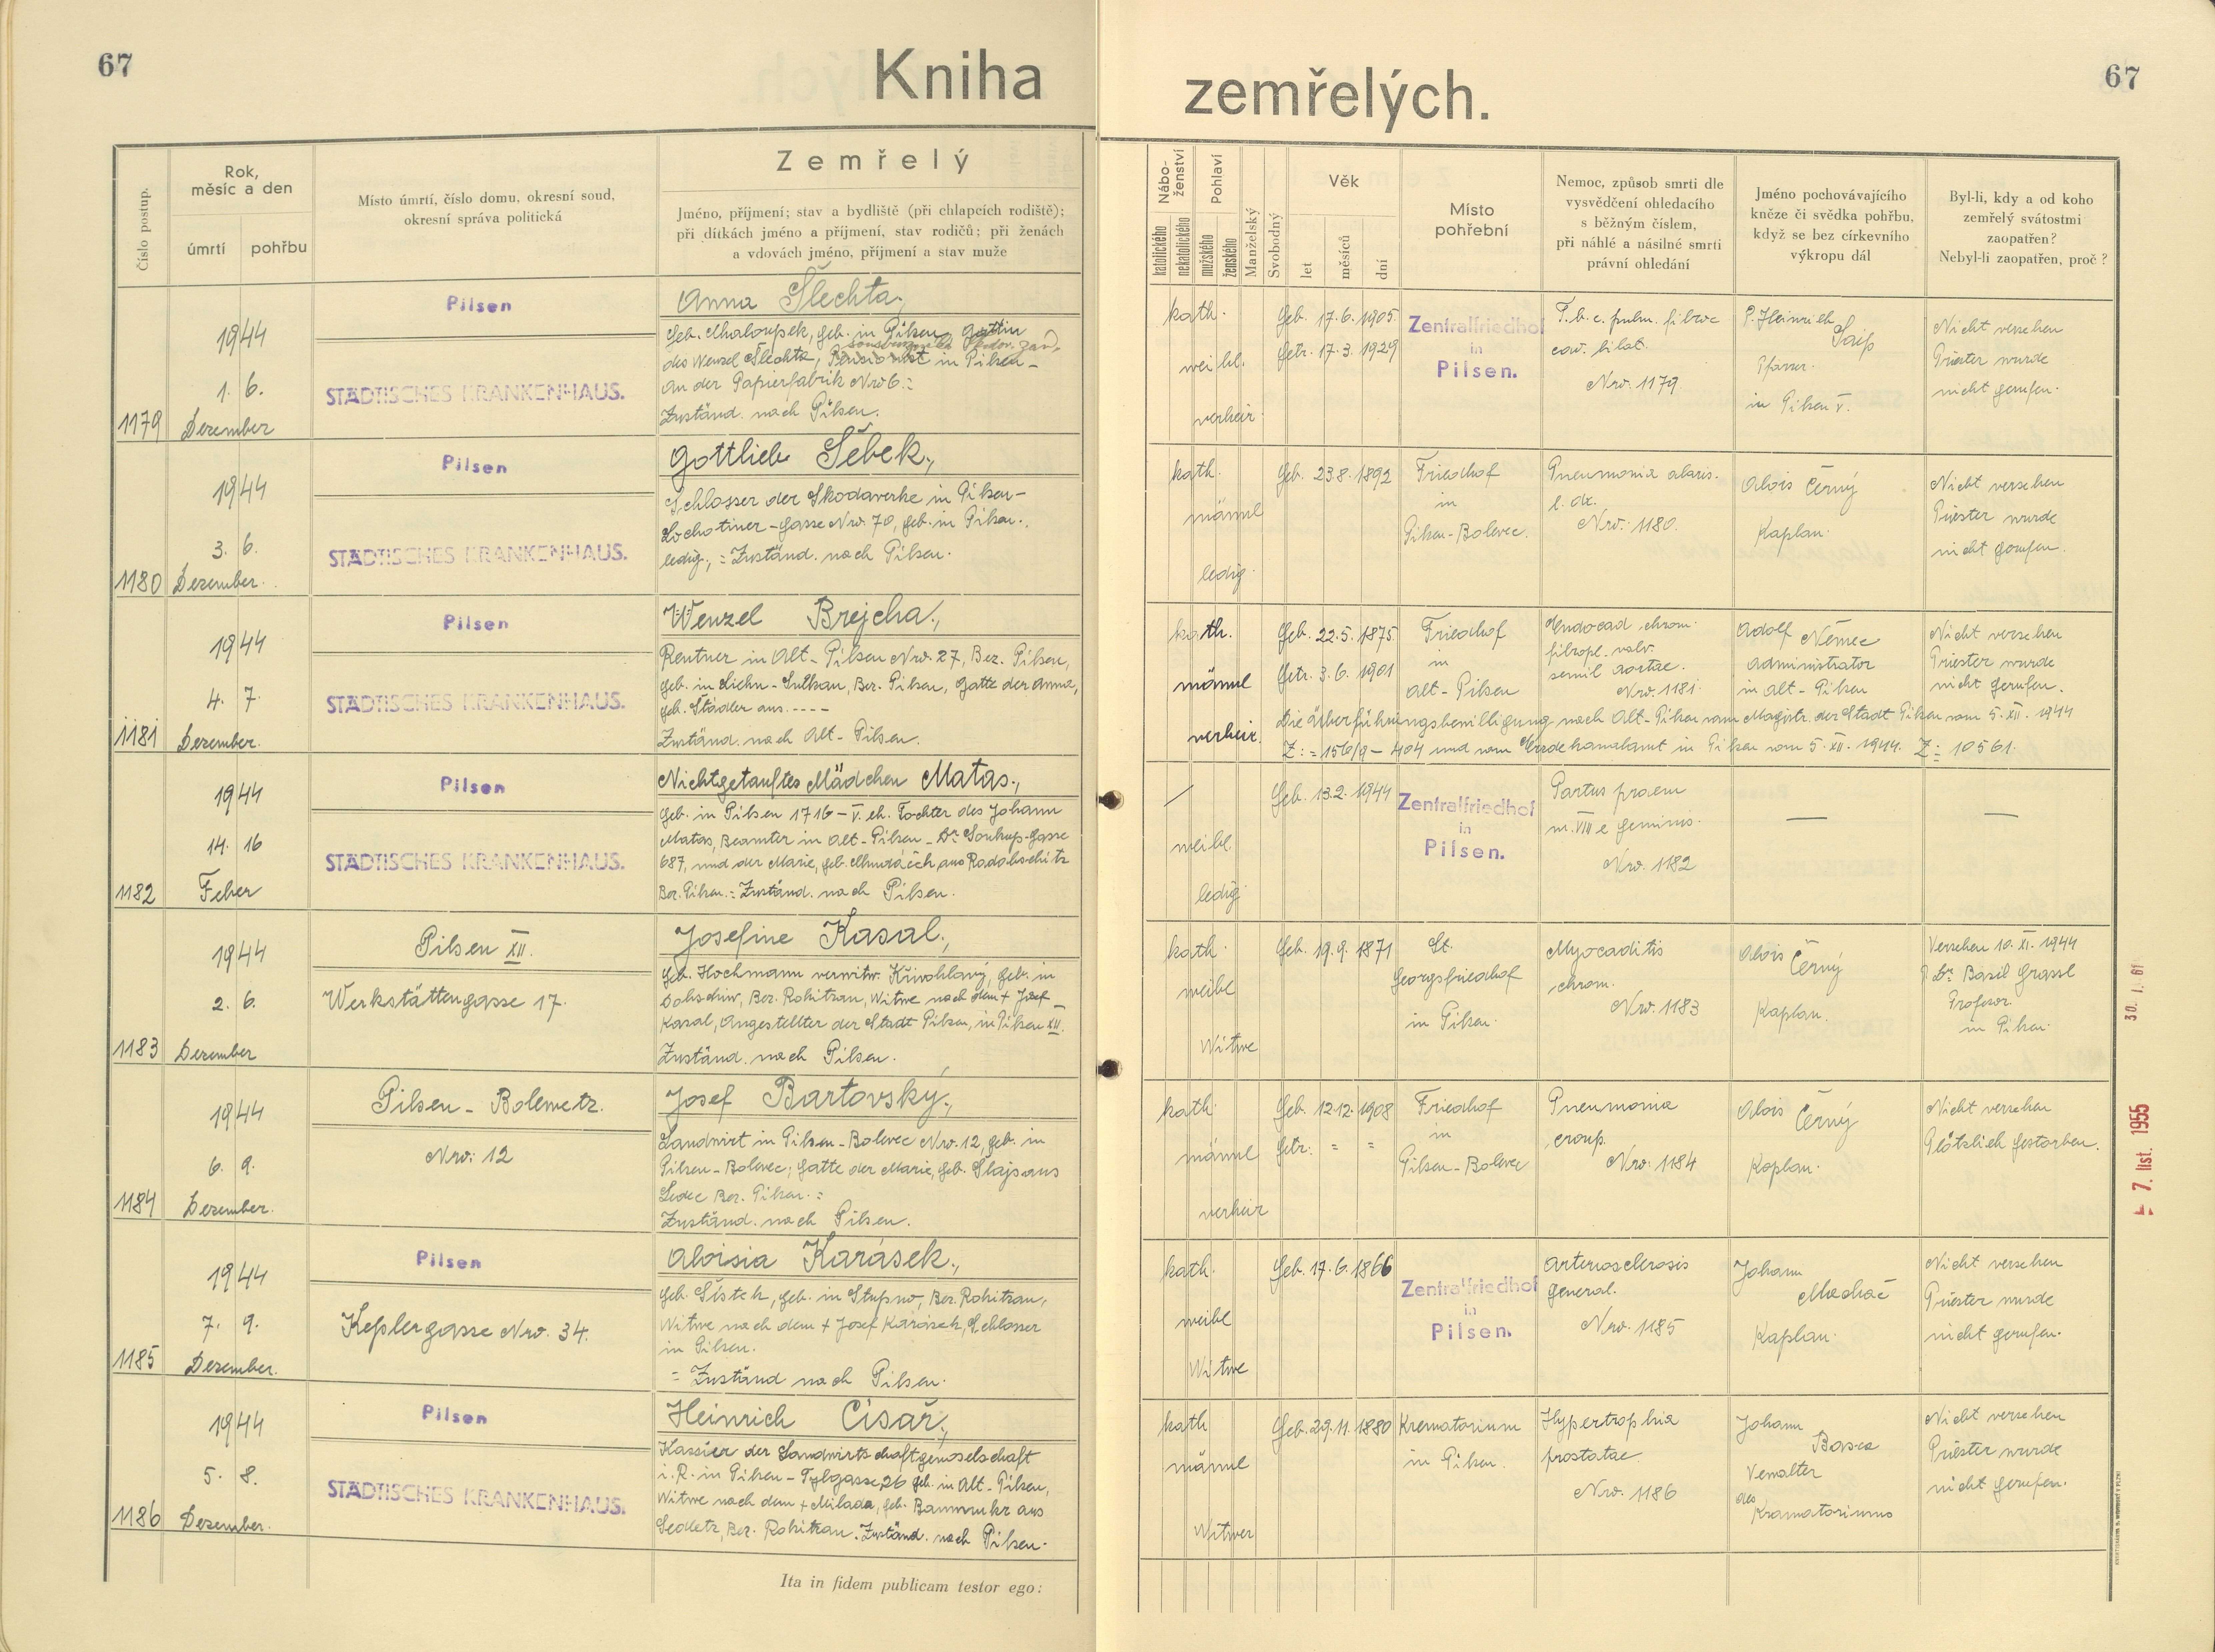 67
Kniha
zemřelých.
67
Číslo postup.
Rok,
měsíc a den
úmrtí
pohřbu
Místo úmrtí, číslo domu, okresní soud,
okresní správa politická
Zemřelý
Jméno, příjmení; stav a bydliště (při chlapcích rodiště);
při dítkách jméno a příjmení, stav rodičů; při ženách
a vdovách jméno, příjmení a stav muže
Nábo-
ženství
katolického
nekatolického
Pohlaví
mužského
ženského
Manželský
Svobodný
Věk
let
měsíců
dní
Místo
pohřební
Nemoc, způsob smrti dle
vysvědčení ohledacího
s běžným číslem,
při náhlé a násilné smrti
právní ohledání
Jméno pochovávajícího
kněze či svědka pohřbu,
když se bez církevního
výkropu dál
Byl-li, kdy a od koho
zemřelý svátostmi
zaopatřen?
Nebyl-li zaopatřen, proč?
1179
1944
1. 6.
Dezember
Pilsen
STÄDTISCHES KRANKENHAUS.
Anna Šlechta,
geb. Chaloupek, geb. in Pilsen, Gattin
des Wenzel Šlechta, Pensionist in Pilsen-
An der Papierfabrik Nro 6.:
Zuständ. nach Pilsen.
kath.
weibl.
verheir.
Geb. 17.6.1905
Getr. 17.3.1929
Zentralfriedhof
in
Pilsen.
T.b.c. pulm. fibroc
cav. bilat.
Nro. 1179.
P. Heinrich
Saip
Pfarrer
in Pilsen V.
Nicht versehen
Priester wurde
nicht gerufen.
1180
1944
3. 6.
Dezember.
Pilsen
STÄDTISCHES KRANKENHAUS.
Gottlieb Šebek,
Schlosser der Skodawerke in Pilsen-
Lochotiner-gasse Nro. 70, geb. in Pilsen.
ledig, = Zuständ. nach Pilsen.
kath.
männl
ledig.
Geb. 23.8.1892
Friedhof
in
Pilsen-Bolevec.
Pneumonia alaris.
l. dx.
Nro. 1180.
Alois Černý
Kaplan.
Nicht versehen
Priester wurde
nicht gerufen.
1181
1944
4. 7.
Dezember.
Pilsen
STÄDTISCHES KRANKENHAUS.
Wenzel Brejcha,
Rentner in Alt-Pilsen Nro. 27, Bez. Pilsen,
geb. in Liehn-Sulkau, Bez. Pilsen, Gatte der Anna,
geb. Städler aus ----
Zuständ. nach Alt-Pilsen.
kath.
männl
verheir.
Geb. 22.5.1875
Getr. 3.6.1901
Friedhof
in
Alt-Pilsen
Endocad chron.
fibropl. valv.
semil aortae.
Nro. 1181.
Adolf Němec
Administrator
in Alt-Pilsen
Nicht versehen
Priester wurde
nicht gerufen.
Die Überführungsbewilligung nach Alt-Pilsen vom Magistr. der Stadt Pilsen vom 5. XII. 1944
Z: = 156/9 - 404 und vom Erzdekanalamt in Pilsen vom 5. XII. 1944. Z = 10561.
1182
1944
14. 16
Feber
Pilsen
STÄDTISCHES KRANKENHAUS.
Nichtgetauftes Mädchen Matas,
geb. in Pilsen 1716-V. eh. Tochter des Johann
Matas, Beamter in Alt-Pilsen - Dr. Soukup-gasse
687, und der Marie, geb. Chudáček aus
Bez. Pilsen. = Zuständ. nach Pilsen.
/
weibl.
ledig.
Geb. 13.2.1944
Zentralfriedhof
in
Pilsen.
Partus praem
m. VIII e geminis.
Nro. 1182
—
—
1183
1944
2. 6.
Dezember
Pilsen XII.
Werkstättengasse 17.
Josefine Kasal,
geb. Hochmann verwitw. Křivohlavý, geb. in
Bez. Rokitzan, Witwe nach dem + Josef
Kasal, Angestellter der Stadt Pilsen, in Pilsen XII.
Zuständ. nach Pilsen.
kath.
weibl
Witwe
Geb. 19.9.1871
St.
Georgsfriedhof
in Pilsen.
Myocaditis
chron.
Nro. 1183
Alois Černý
Kaplan.
Versehen 10. XI. 1944
P. Dr. Basil Grassl
Profesor.
in Pilsen.
1184
1944
6. 9.
Dezember.
Pilsen-Bolewetz.
Nro: 12
Josef Bartovský,
Landwirt in Pilsen-Bolevec Nro. 12, geb. in
Pilsen-Bolevec; Gatte der Marie, geb. Šlajs aus
Ledec Bez. Pilsen. =
Zuständ. nach Pilsen.
kath.
männl
verheir
Geb. 12.12.1908
Getr: = =
Friedhof
in
Pilsen-Bolevec
Pneumonia
croup.
Nro. 1184
Alois Černý
Kaplan.
Nicht versehen
Plötzlich gestorben.
1185
1944
7. 9.
Dezember.
Pilsen
Keplergasse Nro. 34.
Aloisia Karásek,
geb. Šístek, geb. in Stupno, Bez. Rokitzan,
Witwe nach dem + Josef Karásek, Schlosser
in Pilsen.
= Zuständ nach Pilsen.
kath.
weibl
Witwe
Geb. 17.6.1866
Zentralfriedhof
in
Pilsen.
Arteriosclerosis
general.
Nro. 1185
Johann
Machač
Kaplan.
Nicht versehen
Priester wurde
nicht gerufen.
1186
1944
5. 8.
Dezember.
Pilsen
STÄDTISCHES KRANKENHAUS.
Heinrich Císař,
Kassier der Landwirtschaftgenoselschaft
i. R. in Pilsen-Tylgasse 26 geb. in Alt-Pilsen,
Witwe nach dem + Milada, geb. aus
Sedletz, Bez. Rokitzan. Zuständ. nach Pilsen.
kath
männl
Witwer
Geb. 29.11.1880
Krematorium
in Pilsen.
Hypertrophia
prostatae.
Nro. 1186
Johann
Basca
Verwalter
des
Kramatoriums
Nicht versehen
Priester wurde
nicht gerufen.
Ita in fidem publicam testor ego:
30. I. 61
7. list. 1955